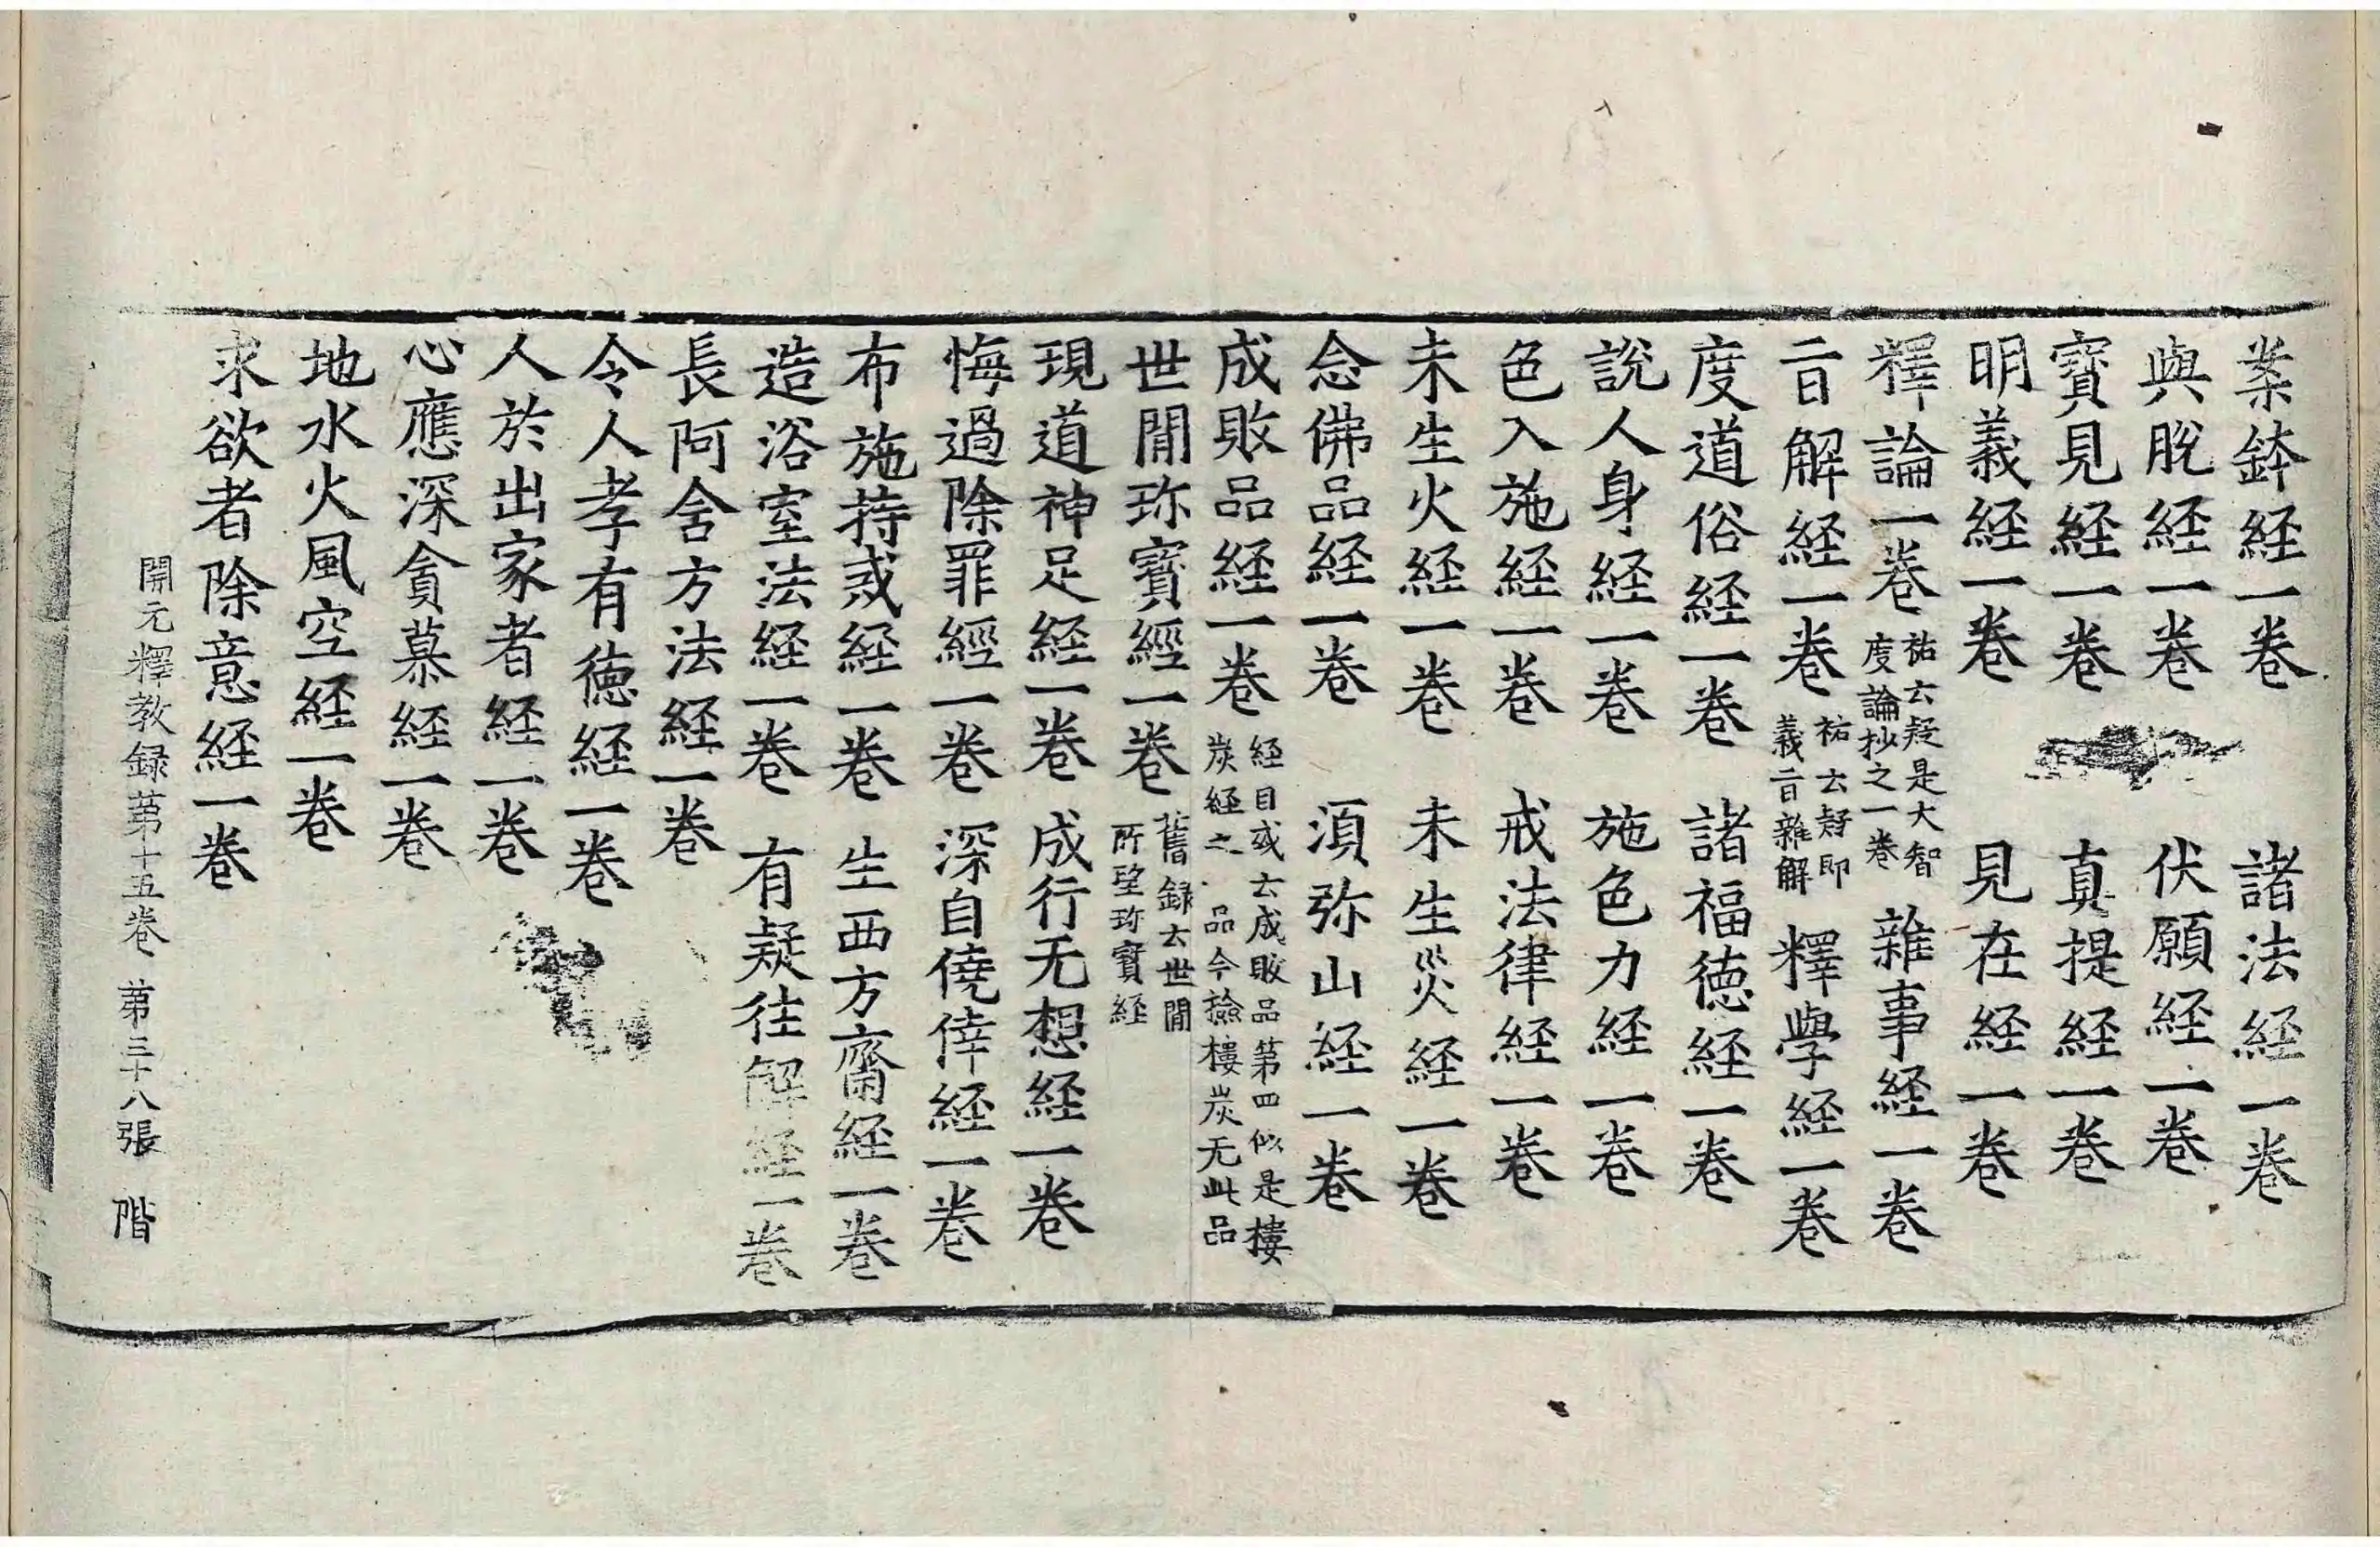 業鉢経一卷　諸法経一卷
與脫経一卷　伏願経一卷
寳見経一卷　真提経一卷
明義経一卷　見在経一卷
釋論一卷祐云疑是大智度論抄之一卷　雜事経一卷
音解経一卷祐云疑即義音雜解　釋學経一卷
度道俗経一卷　諸福徳経一卷
說人身経一卷　施色力経一卷
色入施経一卷　戒法律経一卷
未生火経一卷　未生災経一卷
念佛品経一卷　須弥山経一卷
成敗品経一卷経目或云成敗品第四似是樓炭経之一品今撿樓炭无此品
世間珎寳經一卷舊録云世間所望珎寳経
現道神足経一卷　成行无想経一卷
悔過除罪經一卷　深自僥倖経一卷
布施持戒経一卷　生西方齋経一卷
造浴室法経一卷　有疑往解経一卷
長阿含方法経一卷
令人孝有徳経一卷
人於出家者経一卷
心應深貪慕経一卷
地水火風空経一卷
求欲者除意経一卷
開元釋教録第十五卷　第三十八張　階